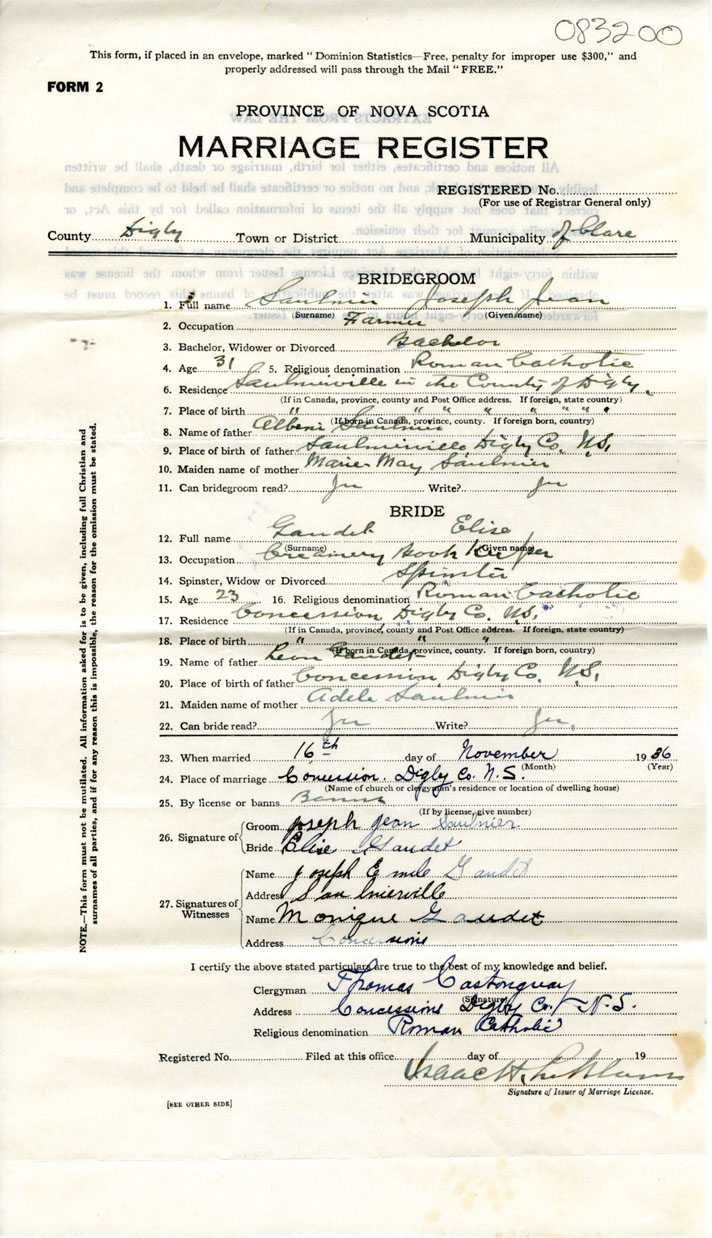 083200
This form, if placed in an envelope, marked "Dominion Statistics—Free, penalty for improper use $300," and
properly addressed will pass through the Mail "FREE."
FORM 2
PROVINCE OF NOVA SCOTIA
MARRIAGE REGISTER
REGISTERED No.
(For use of Registrar General only)
County Digby Town or District Municipality of Clare
BRIDEGROOM
1. Full name Saulnier Joseph Jean
(Surname) (Given name)
2. Occupation Farmer
3. Bachelor, Widower or Divorced Bachelor
4. Age 31 5. Religious denomination Roman Catholic
6. Residence Saulnierville in the County of Digby.
(If in Canada, province, county and Post Office address. If foreign, state country)
7. Place of birth " " " " " " "
(If born in Canada, province, county. If foreign born, country)
8. Name of father Saulnier
9. Place of father Saulnierville Digby Co. N.S.
10. Maiden name of mother Marie May Saulnier
11. Can bridegroom read? Yes Write? Yes
BRIDE
12. Full name Gaudet Elise
(Surname) (Given name)
13. Occupation Creamery Book Keeper
14. Spinster, Widow or Divorced Spinster
15. Age 23 16. Religious denomination Roman Catholic
17. Residence Concession Digby Co. N.S.
(If in Canada, province, county and Post Office address. If foreign, state country)
18. Place of birth " " "
(If born in Canada, province, county. If foreign born, country)
19. Name of father Leon Gaudet
20. Place of birth of father Concession Digby Co. N.S.
21. Maiden name of mother Adele Saulnier
22. Can bride read? Yes Write? Yes.
23. When married 16th day of November 1936
(Month) (Year)
24. Place of marriage Concession. Digby Co. N.S.
(Name of church or clergyman's residence or location of dwelling house)
25. By license or banns Banns
(If by license, give number)
26. Signature of
Groom joseph jean Saulnier
Bride Elise Gaudet
27. Signatures of Witnesses
Name joseph Emile Gaudet
Address Saulnierville
Name Monique Gaudet
Address Concessions
I certify the above stated particulars are true to the best of my knowledge and belief.
Clergyman Thomas Castonguay
(Signature)
Address Concessions Digby Co. N.S.
Religious denomination Roman Catholic
Registered No. Filed at this office day of 19
Isaac H.
Signature of Issuer of Marriage License.
[SEE OTHER SIDE]
NOTE.—This form must not be mutilated. All information asked for is to be given, including full Christian and
surnames of all parties, and if for any reason this is impossible, the reason for the omission must be stated.